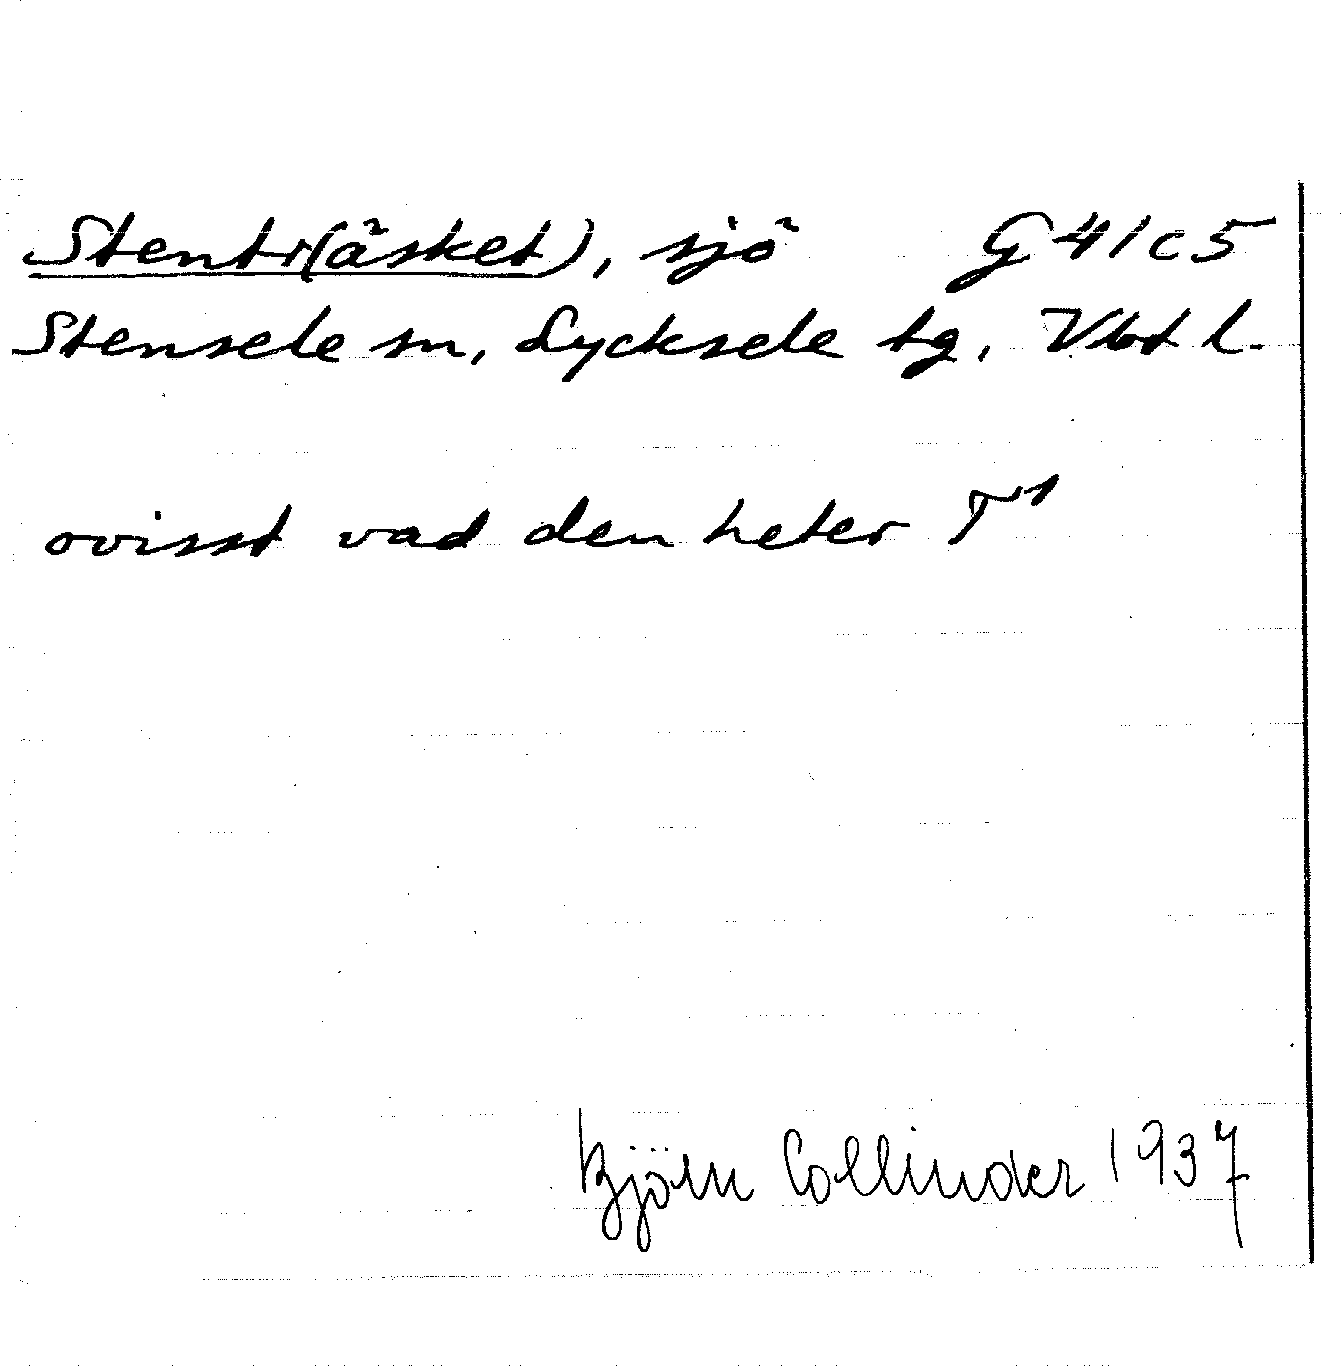 Stentr(äsket), sjö G 41 c 5
Stensele sn, Lycksele tg, Vbt l.
ovisst vad den heter T¹
Björn Collinder 1937